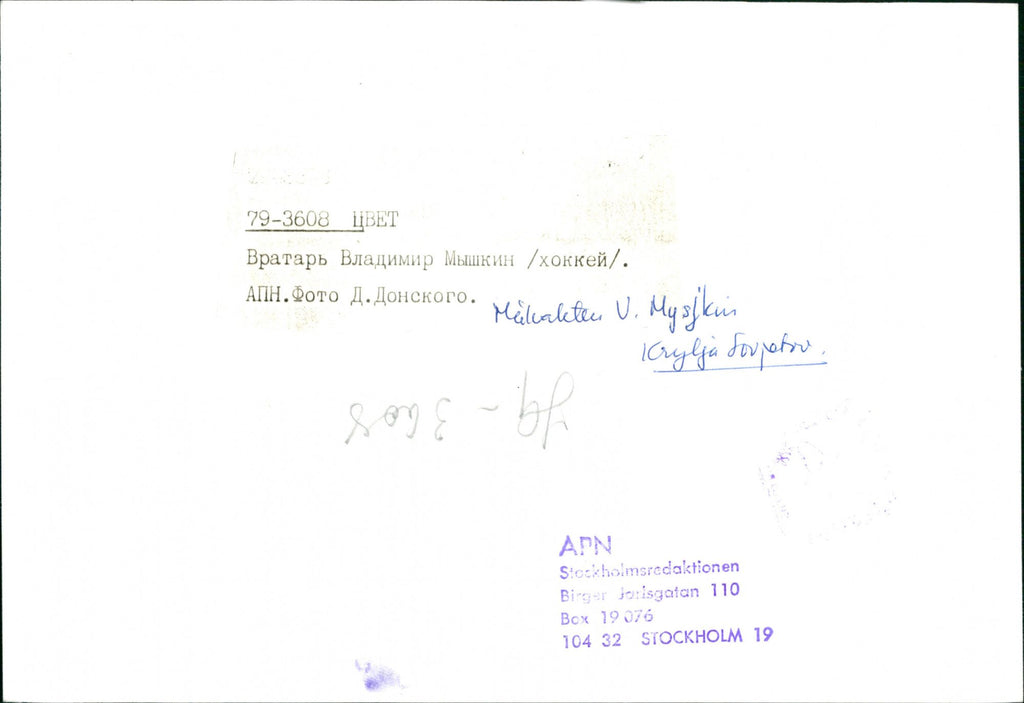 79-3608 ЦВЕТ
Вратарь Владимир Мышкин /хоккей/.
АПН.Фото Д.Донского.
Målvakten V. Mysjkin
Krylja Sovjetov.
79-3608
APN
Stockholmsredaktionen
Birger Jarlsgatan 110
Box 19076
104 32 STOCKHOLM 19